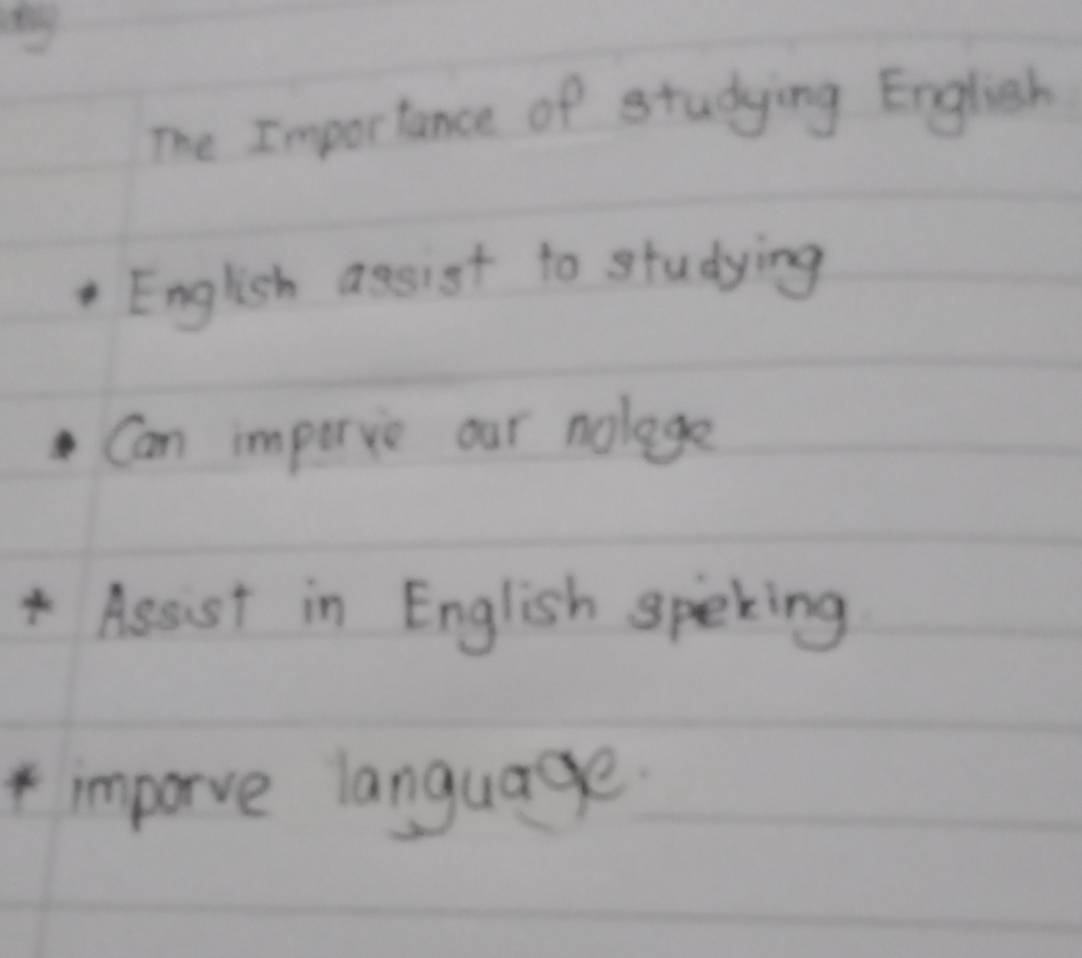 The Importance of studying English
• English assist to studying
• Can imporve our nolege
* Assist in English speking
* imporve language.